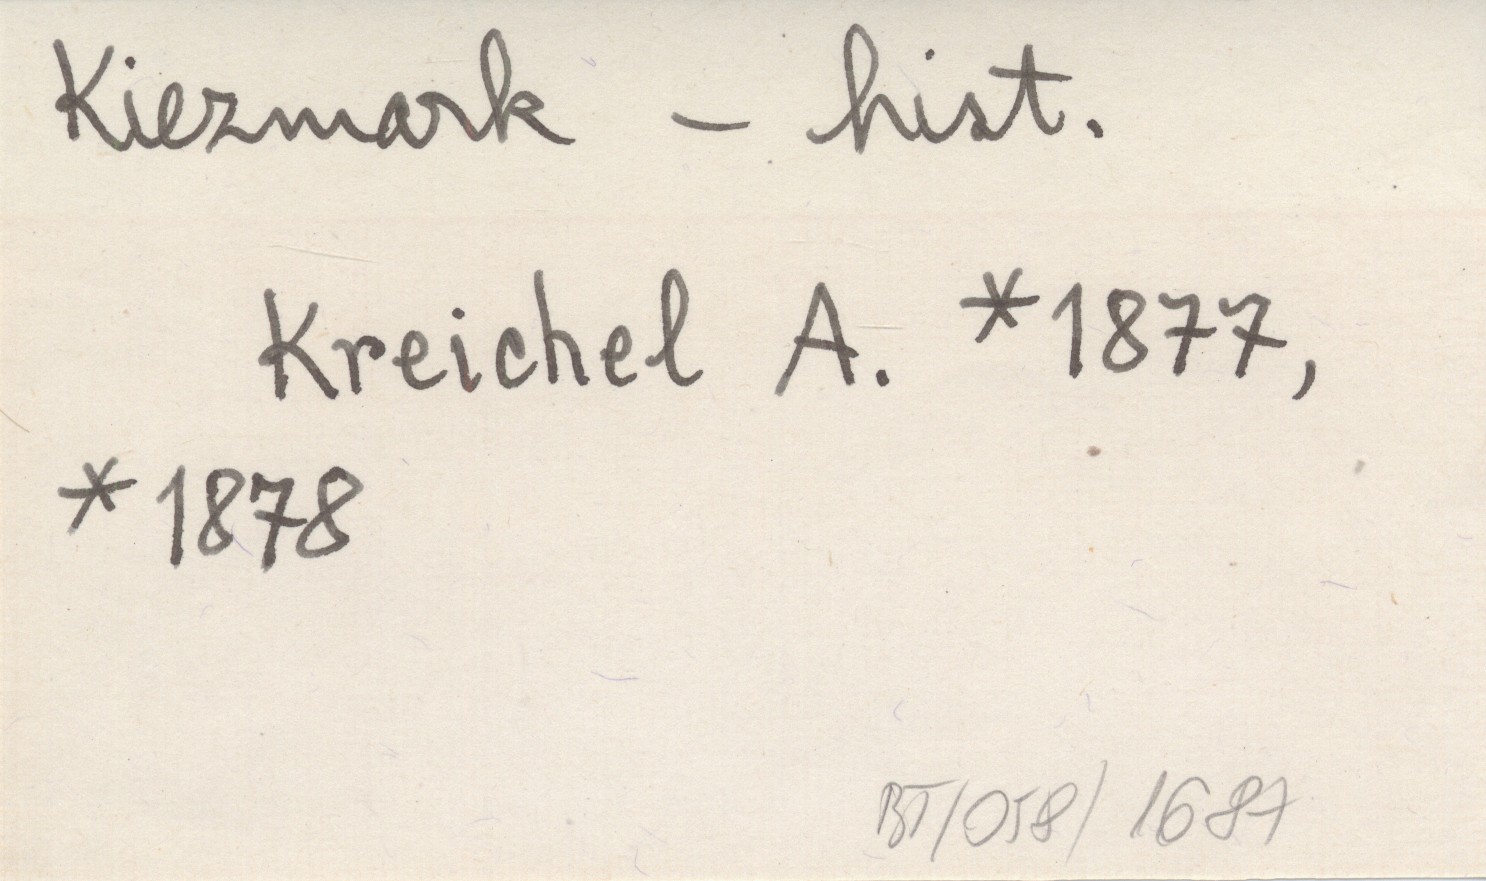 Kiezmark - hist.
Kreichel A. *1877,
*1878
BT/058/1687